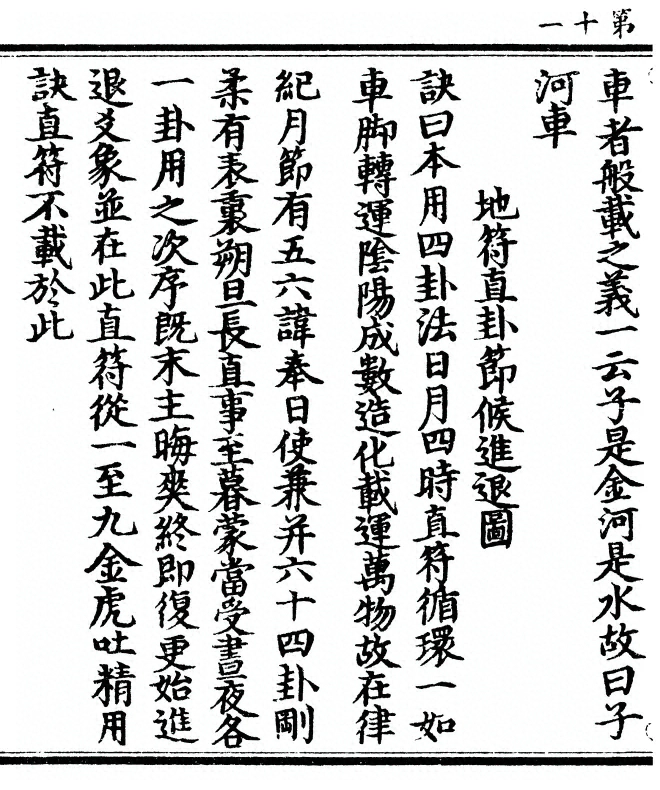 第十一
車者般載之義一云子是金河是水故曰子
河車
地符直卦節候進退圖
訣曰本用四卦法日月四時直符循環一如
車脚轉運陰陽成數造化載運萬物故在律
紀月節有五六諱奉日使兼并六十四卦剛
柔有表裏朔旦長直事至暮蒙當受晝夜各
一卦用之次序既末主晦爽終即復更始進
退爻象並在此直符從一至九金虎吐精用
訣直符不載於此